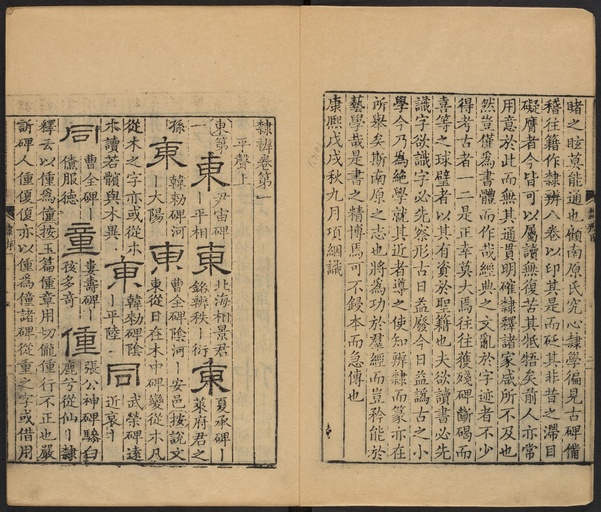 睹之眩莫能通也顧南原氏究心隸學徧見古碑備
稽往籍作隸辨八卷以印其是而砭其非昔之滯目
礙膺者今皆可以屬讀無復苦其牴牾矣前人亦常
用意於此而無其通貫明確隸釋諸家咸所不及也
然豈僅為書體而作哉經典之文亂於字迹者不少
得考古者一二是正幸莫大焉往往獲殘碑斷碣而
喜等之球璧者以其有資於聖籍也夫欲讀書必先
識字欲識字必先察形古日益廢今日益譌古之小
學今乃為絕學就其近者導之使知辨隸而篆亦在
所舉矣斯南原之志也將為功於羣經而豈矜能於
藝學哉是書之精博焉可不鋟本而急傳也
康熙戊戌秋九月項絪識
隸辨卷第一
平聲上
東第一
東
尹宙碑
丨平相
東
北海相景君
銘辨秩丨衍
東
夏承碑丨
萊府君之
孫
東
韓勑碑河
丨大陽
東
曹全碑陰河丨安邑按說文
東從日在木中碑變從木凡
從木之字亦或從木
木讀若髕與木異
東
韓勑碑陰
丨平陸
同
武榮碑遠
近哀丨
同
曹全碑丨
僚服德
童
婁壽碑丨
孩多奇
僮
張公神碑驂白
鹿兮從仙丨隸
釋云以僮為童按玉篇僮章用切儱僮行不正也嚴
訢碑人僮復復亦以僮為僮諸碑從重之字或借用